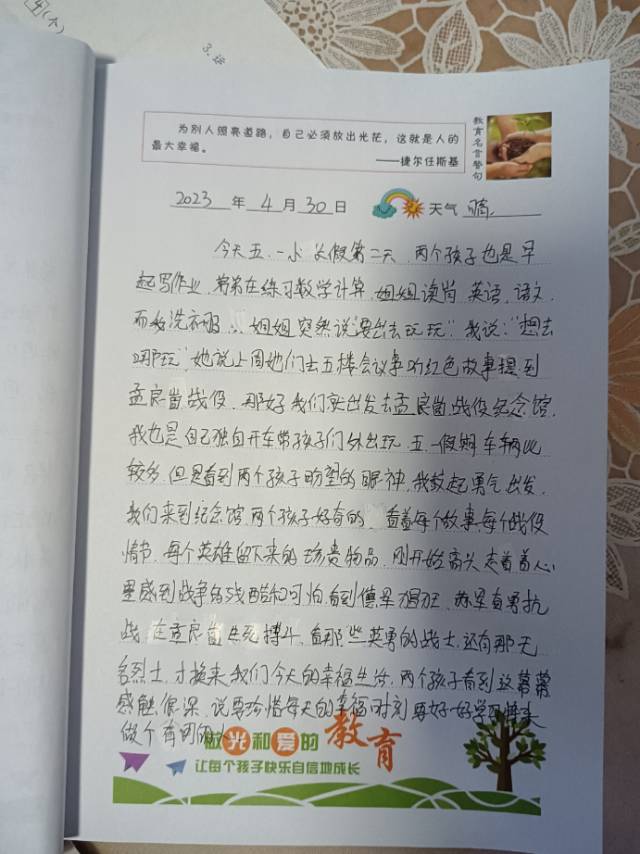 3.
为别人照亮道路，自己必须放出光芒，这就是人的
最大幸福。
——捷尔任斯基
教育名言警句
2023 年 4 月 30 日 天气 晴
今天五.一小长假第二天,两个孩子也是早
起写作业,弟弟在练习数学计算,姐姐读背 英语,语文,
而我洗衣服、姐姐突然说"要出去玩玩"我说:"想去
哪玩"她说上周她们去五楼会议事听红色故事提到
孟良崮战役,那好我们就出发去孟良崮战役纪念馆,
我也是自己独自开车带孩子们外出玩 五.一假期车辆
较多,但是看到两个孩子盼望的眼神,我鼓起勇气出发,
我们来到纪念馆,两个孩子好奇的,看着每个故事,每个战役
情节,每个英雄留下来的珍贵物品,刚开始 走着看心
里感到战争的残酷和可怕,看到 军猖狂,
战,在孟良崮生死搏斗,看那些英勇的战士,还有那无
名烈士,才换来我们今天的幸福生活,两个孩子看到这幕幕
感触很深,说要珍惜每天的幸福时刻 要好好学习 将来
做个有用的人
做光和爱的教育
让每个孩子快乐自信地成长